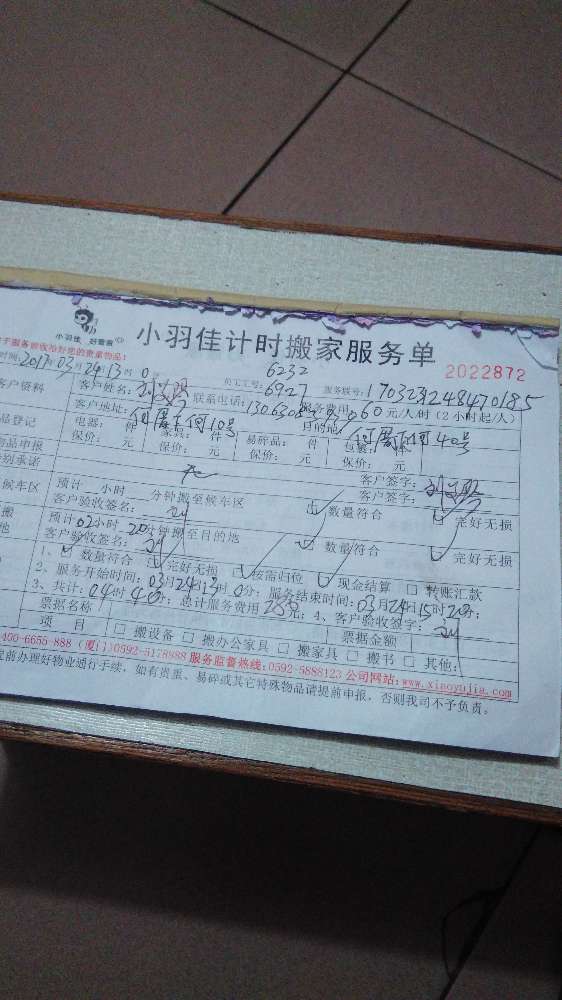 小羽佳 好管家
小羽佳计时搬家服务单
2022872
于服务验收给好您的贵重物品!
时间: 2017年03月24日13时0分
员工工号: 6232
6927
服务联号: 170323248470185
客户资料 客户姓名: 联系电话: 服务费用 60 元/人/时 (2小时起/人)
客户地址: 何厝下何10号 目的地: 何厝下何40号
品登记 电器: 件 家具: 件 易碎品: 件 包裹: 件
物品申报 保价: 元 保价: 元 保价: 元 保价: 元
特别承诺 无 客户签字:
客户签字:
候车区 预计 小时 分钟搬至候车区 数量符合 完好无损
客户验收签名: 刘
搬 预计02小时 20分钟搬至目的地 数量符合 完好无损
地 客户验收签名: 刘
1、 数量符合 完好无损 按需归位 现金结算 □ 转账汇款
2、服务开始时间: 03月24日13时0分; 服务结束时间: 03月24日15时20分;
3、共计: 04时40分; 总计服务费用 280元; 4、客户验收签字: 刘
票据名称 票据金额
项 目 □ 搬设备 □ 搬办公家具 □ 搬家具 □ 搬书 □ 其他:
400-6655-888 (厦门)0592-5178888 服务监督热线:0592-5888123 公司网站:www.xiaoyujia.com
提前办理好物业通行手续, 如有贵重、易碎或其它特殊物品请提前申报, 否则我司不予负责。